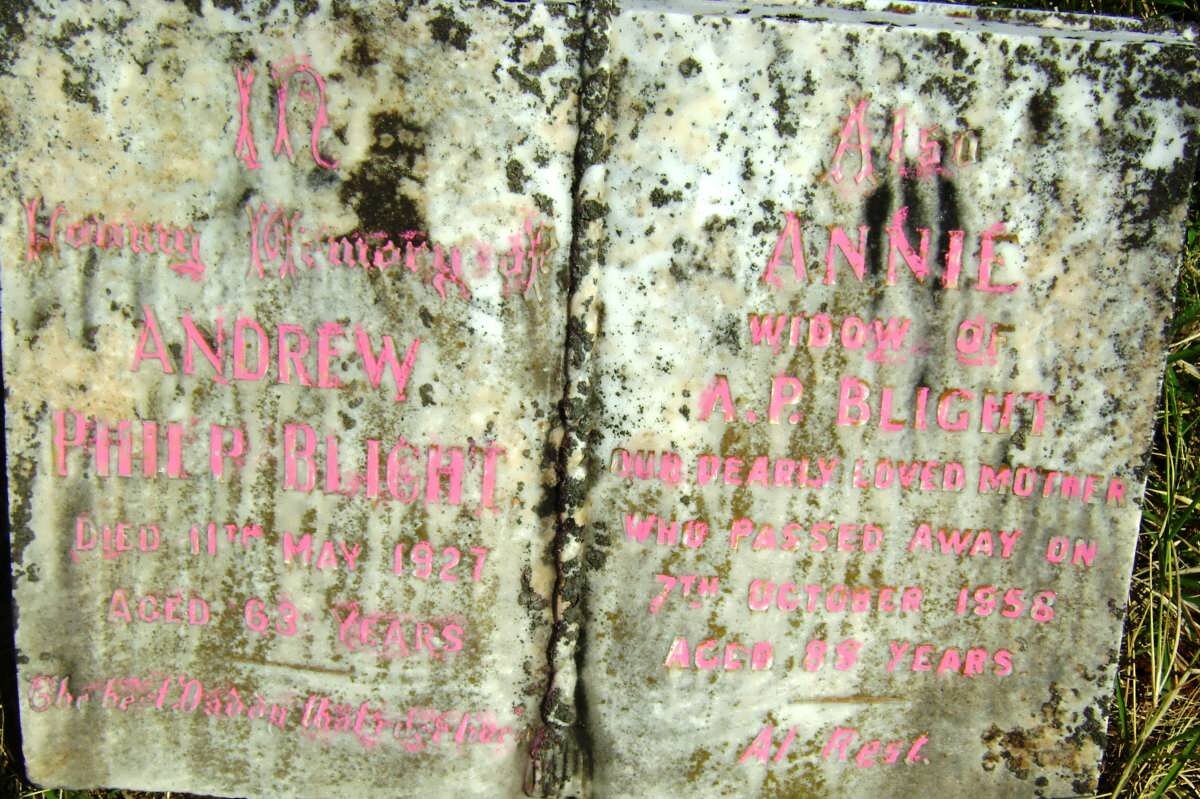 In
Loving Memory of
ANDREW
PHILIP BLIGHT
DIED 11TH MAY 1927
AGED 63 YEARS
The best Daddy that
Also
ANNIE
WIDOW OF
A.P. BLIGHT
OUR DEARLY LOVED MOTHER
WHO PASSED AWAY ON
7TH OCTOBER 1958
AGED 88 YEARS
At Rest.